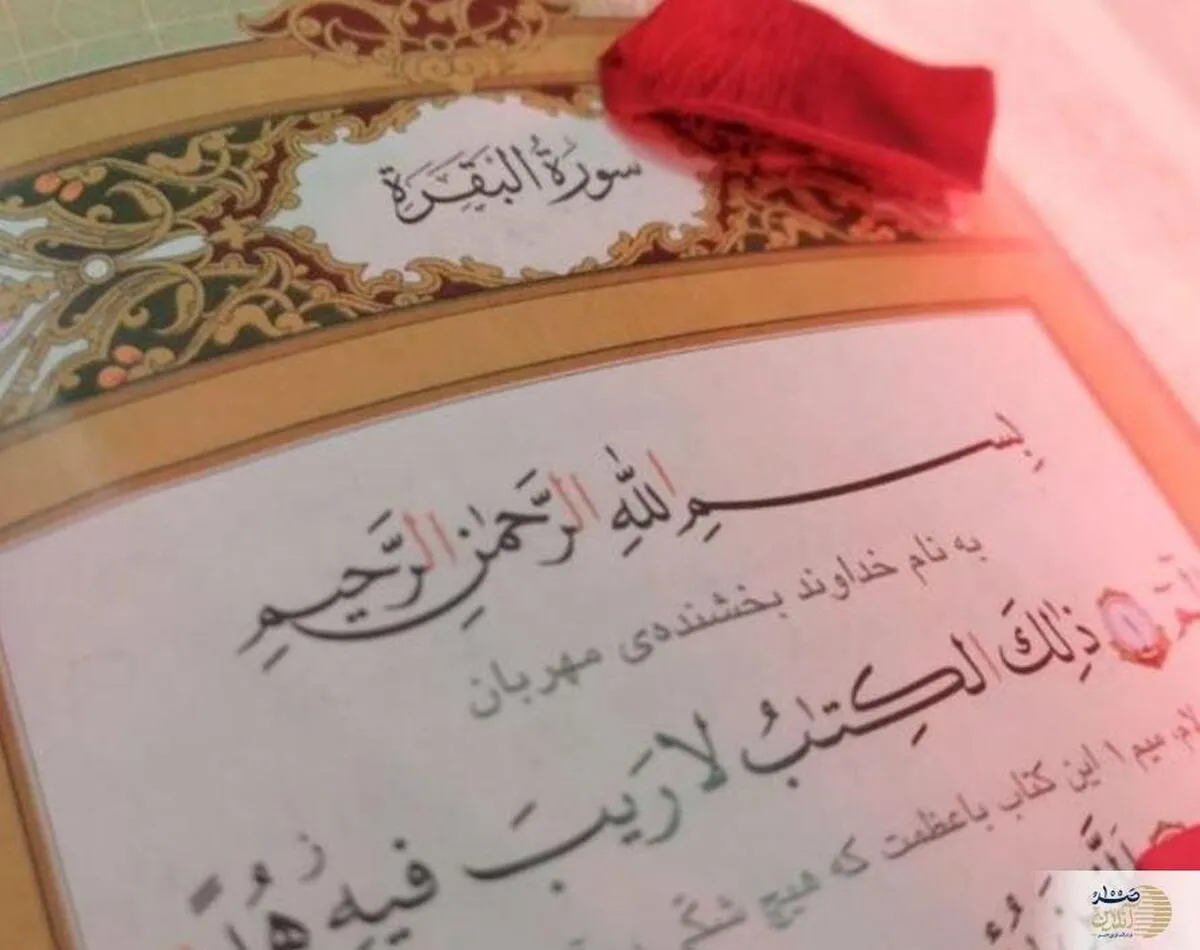 سورة البقرة
بِسمِ اللّٰهِ الرَّحمٰنِ الرَّحیمِ
به نام خداوند بخشنده‌ی مهربان
۱ ذٰلِكَ الکِتٰبُ لا رَیبَ فیهِ
میم ۱ این کتاب باعظمت که هیچ شکّی